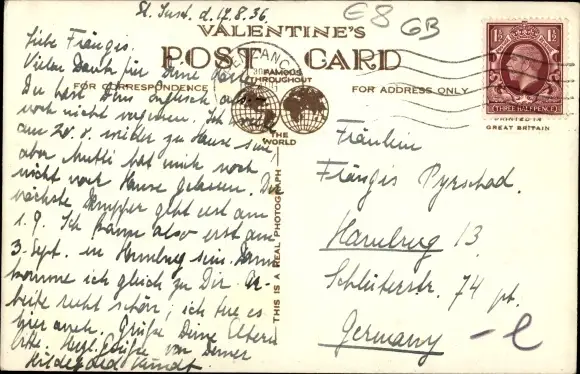 St. Just. d. 17.8.36.
E8 GB
VALENTINE'S
POST CARD
FAMOUS THROUGHOUT
THE WORLD
FOR CORRESPONDENCE
FOR ADDRESS ONLY
THIS IS A REAL PHOTOGRAPH
1½ 1½
THREE HALFPENCE
PRINTED IN
GREAT BRITAIN
PENZANCE
Liebe Fränzis.
Vielen Dank für Deine Karte
Du hast Dein englisch also
noch nicht vergessen. Ich wollte
am 20. 8. wieder zu Hause sein
aber Mutti hat mich noch
nicht nach Hause gelassen. Der
nächste Dampfer geht erst am
1. 9. Ich komme also erst am
3. Sept. in Hamburg sein. Dann
komme ich gleich zu Dir. Ar-
beite recht schön, ich tue es
hier auch. Grüße Deine Eltern
Herzl. Grüße von Deiner
Hildegard Kundt.
Fräulein
Fränzis Pyrschad.
Hamburg 13
Schlüterstr. 74 pt.
Germany